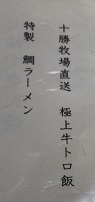 十勝牧場直送 極上牛トロ飯
特製 鯛ラーメン